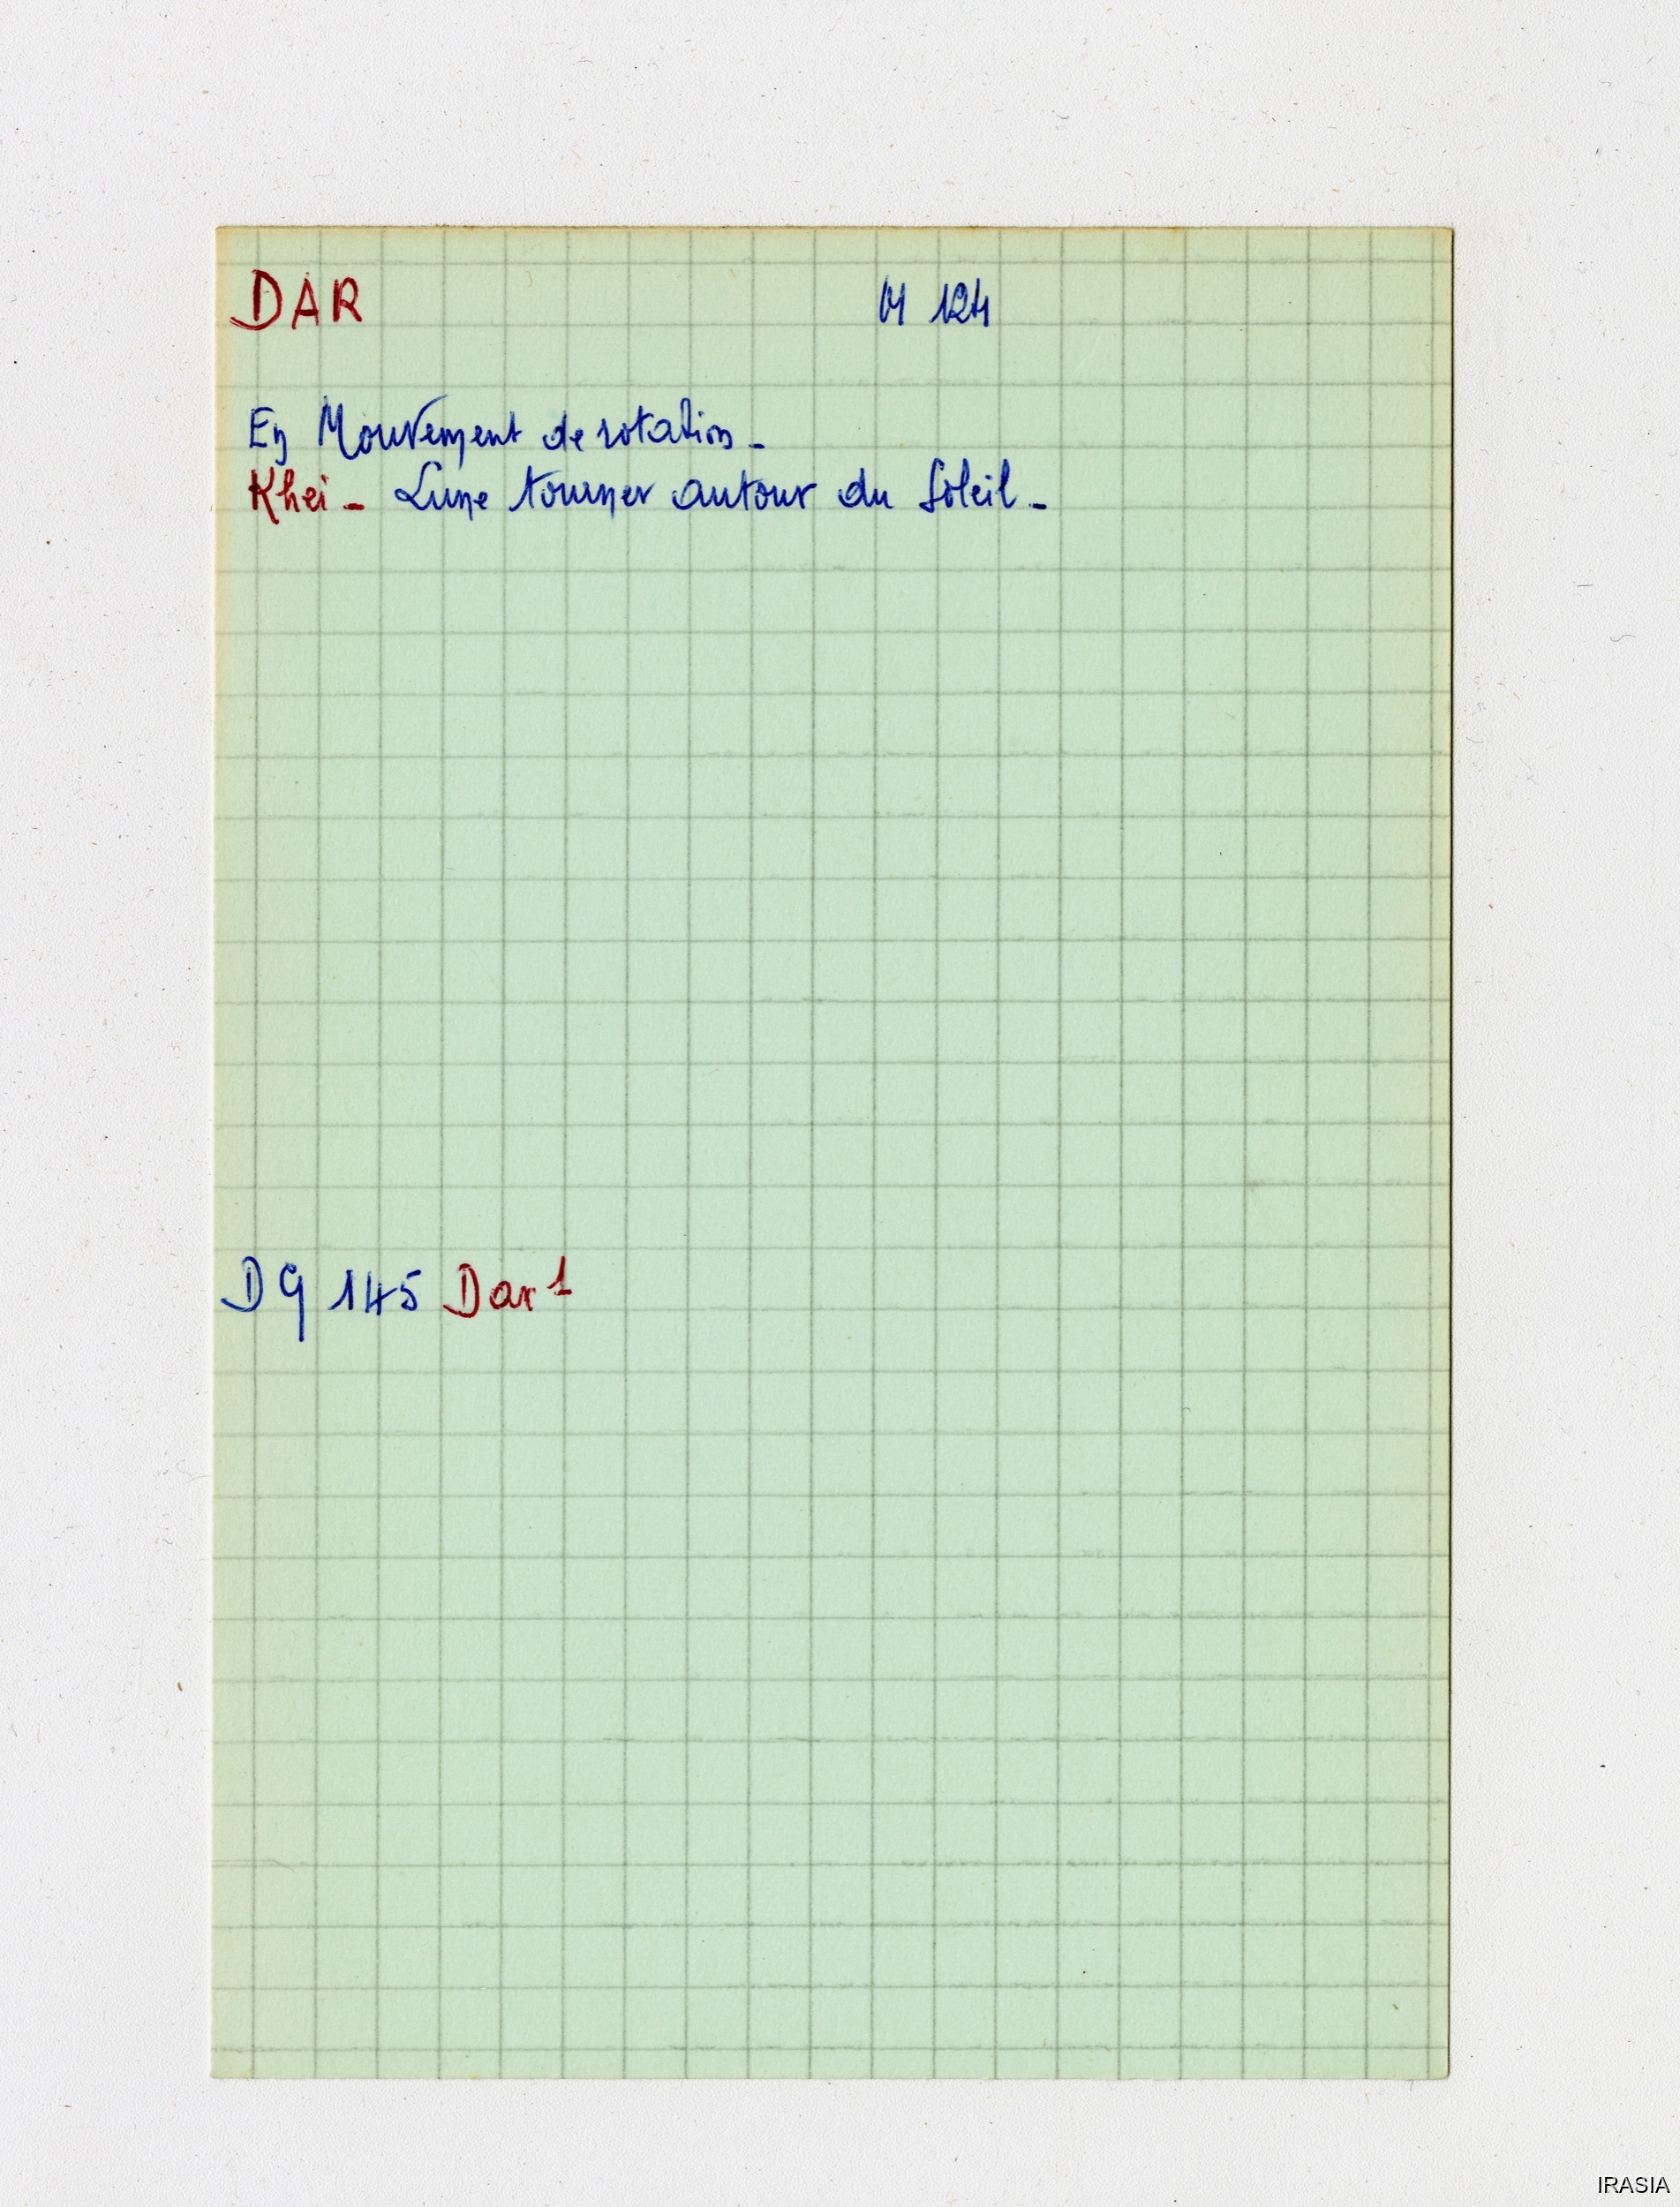 DAR M 124
En Mouvement de rotation -
Khei - Lune tourner autour du Soleil -
DG 145 Dar 1
IRASIA